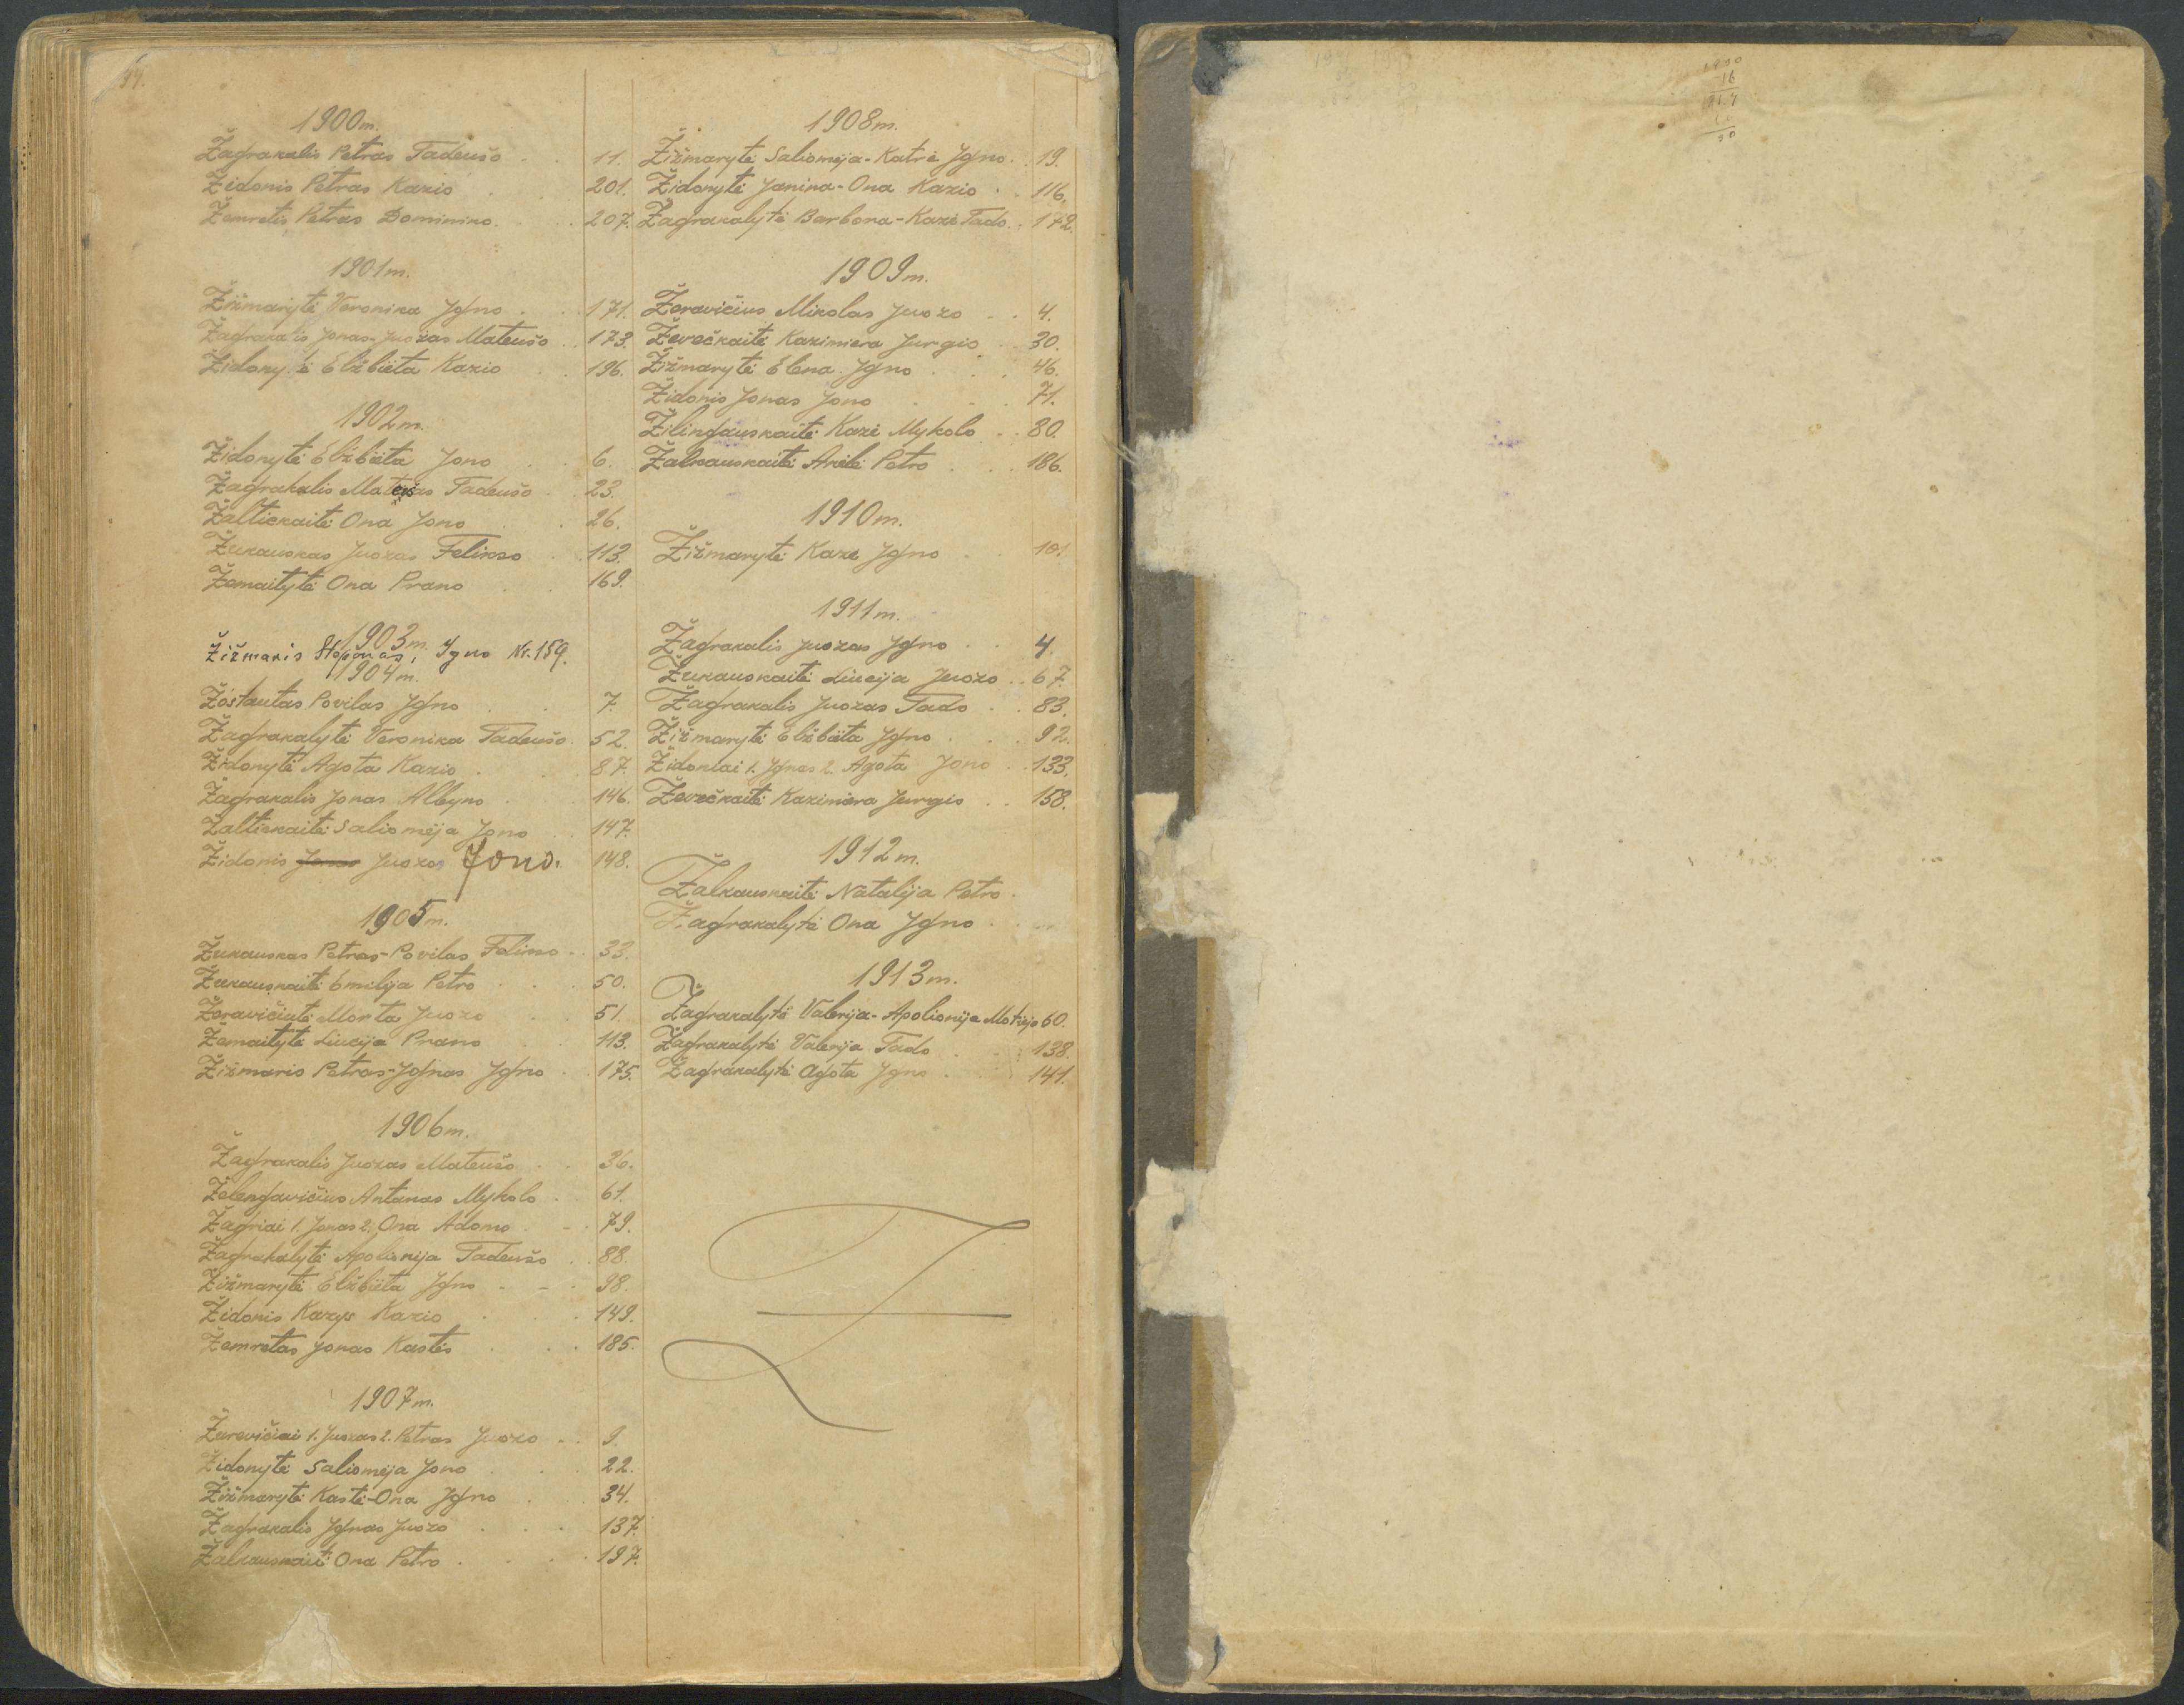 1900m.
Žagrakalis Petras Tadeušo . . 11.
Židonis Petras Kazio . . 201.
Žemretis Petras Dominiko. . . 207.
1901m.
Žižmarytė Veronika Igno . . 171.
Žagrakalis Jonas-Juozas Mateušo . . 173.
Židonytė Elžbieta Kazio . . 196.
1902m.
Židonytė Elžbieta Jono . . 6.
Žagrakalis Matejas Tadeušo . . 23.
Žaltiekaitė Ona Jono . . 26.
Žukauskas Juozas Felikso . . 113.
Žemaitytė Ona Prano . . 169.
1903m.
Žižmaris Steponas, Igno Nr. 159.
1904m.
Žostautas Povilas Igno . . 7.
Žagrakalytė Veronika Tadeušo. 52.
Židonytė Agota Kazio . . 87.
Žagrakalis Jonas Albyno . . 146.
Žaltiekaitė Saliomėja Jono . . 147.
Židonis Jonas Juozas Jono. 148.
1905m.
Žukauskas Petras-Povilas Felikso . . 33.
Žukauskaitė Emilija Petro . . . 50.
Žeravičiutė Morta Juozo . . 51.
Žemaitytė Liucija Prano . . 113.
Žižmaris Petras-Ignas Igno . . 175.
1906m.
Žagrakalis Juozas Mateušo . . 36.
Želengavičius Antanas Mykolo . . 61.
Žagriai 1. Jonas 2. Ona Adomo . - 79.
Žagrakalytė Apolionija Tadeušo . . 88.
Žižmarytė Elžbieta Igno - - . 98.
Židonis Kazys Kazio . . . 149.
Žemretas Jonas Kastės . . . 185.
1907m.
Žuravičiai 1. Juozas 2. Petras Juozo . . 9.
Židonytė Saliomėja Jono . . . 22.
Žižmarytė Kastė-Ona Igno . . 34.
Žagrakalis Ignas Juozo . . . 137.
Žalkauskaitė Ona Petro . . . . 197.
1908m.
Žižmarytė Saliomėja-Katrė Igno. . 19.
Židonytė Janina-Ona Kazio . . 116.
Žagrakalytė Barbora-Kazė Tado. . 172.
1909m.
Žeravičius Mikolas Juozo . . 4.
Ževečkaitė Kazimiera Jurgio . . 30.
Žižmarytė Elena Igno . . . 46.
Židonis Jonas Jono . . . 71.
Žilingauskaitė Kazė Mykolo . . 80.
Žalkauskaitė Anelė Petro . . . 186.
1910m.
Žižmarytė Kazė Igno . . 101.
1911m.
Žagrakalis Juozas Igno . . 4.
Žukauskaitė Liucija Juozo . . 67.
Žagrakalis Juozas Tado . . 83.
Žižmarytė Elžbieta Igno . . . 92.
Židoniai 1. Ignas 2. Agota Jono . . 133.
Ževečkaitė Kazimiera Jurgio . . 158.
1912m.
Žalkauskaitė Natalija Petro .
Žagrakalytė Ona Igno .
1913m.
Žagrakalytė Valerija-Apolionija Motiejo 60.
Žagrakalytė Valerija Tado . . 138.
Žagrakalytė Agota Igno . . 141.
Z